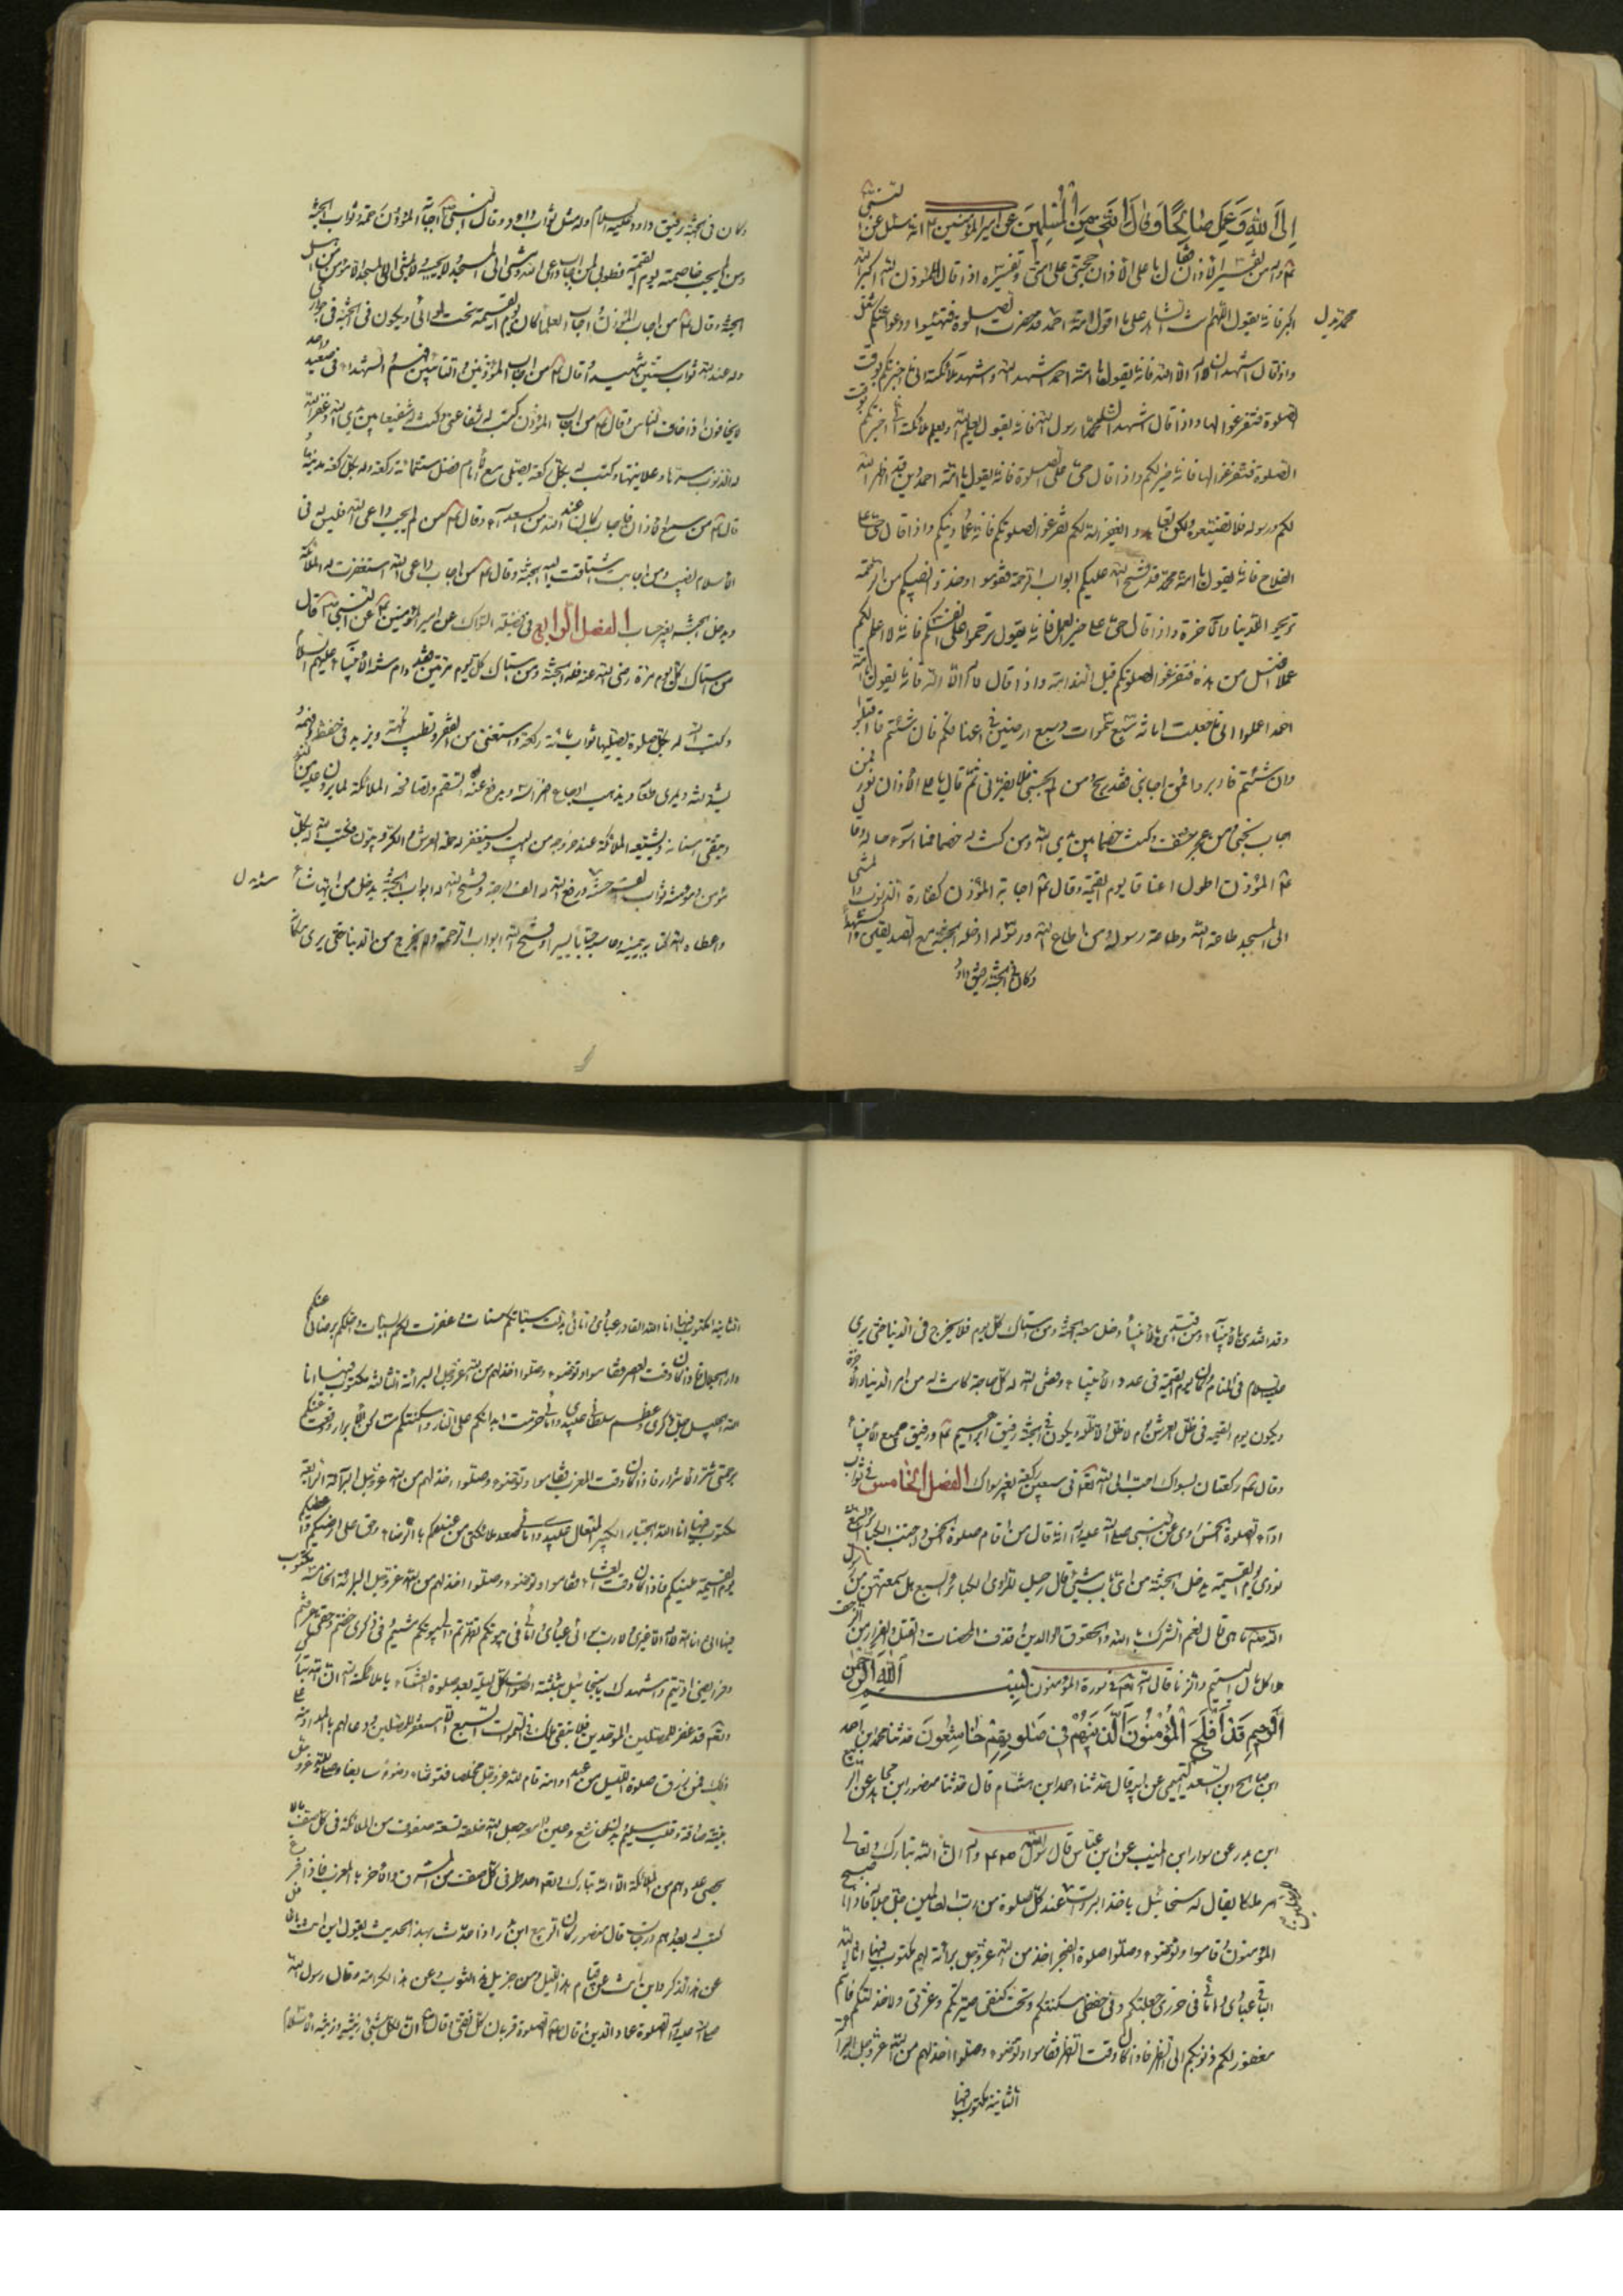 إِلَى اللهِ وَعَمِلَ صَالِحًا وَقَالَ إِنَّنِي مِنَ الْمُسْلِمِينَ عن امير المؤمنين ع انه سئل عن النبي
عن تفسير الاذان قال يا على الاذان حجتى على امتى وتفسيره اذا قال المؤذن الله اكبر الله
اكبر فانه يقول اللهم انت الشاهد على ما اقول يا امة احمد قد حضرت الصلوة فتهيئوا ودعوا عنكم شغل
واذا قال اشهد ان لا اله الا الله فانه يقول يا امة احمد اشهد الله واشهد ملائكته انى اخبرتكم بوقت
الصلوة فتفرغوا لها واذا قال اشهد ان محمدا رسول الله فانه يقول يعلم الله ويعلم ملائكته انى اخبرتكم بوقت
الصلوة فتفرغوا لها فانه خير لكم واذا قال حى على الصلوة فانه يقول يا امة احمد دين قد اظهر الله
لكم ورسوله فلا تضيعوه ولكن تعاهدوا يغفر الله لكم تفرغوا لصلوتكم فانه عماد دينكم واذا قال حى على
الفلاح فانه يقول يا امة محمد قد فتح الله عليكم ابواب الرحمة فقوموا وخذوا نصيبكم من الرحمة
تربحوا الدنيا والآخرة واذا قال حى على خير العمل فانه يقول ترحموا على انفسكم فانه لا اعلم لكم
عملا افضل من هذه فتفرغوا لصلوتكم قبل الندامة واذا قال لا اله الا الله فانه يقول يا امة
احمد اعلموا انى جعلت امانة سبع سموات وسبع ارضين فى اعناقكم فان شئتم فاقبلوا
وان شئتم فادبروا فمن اجابنى فقد ربح ومن لم يجبنى فلا يضرنى ثم قال يا على الاذان نور فمن
اجاب نجى ومن عجز خسف وكنت خصما بين يدى الله ومن كنت له خصما فما اسوء حاله وقال
ع المؤذن اطول اعناقا يوم القيمة وقال ع اجابة المؤذن كفارة الذنوب والمشى
الى المسجد طاعة الله وطاعة رسوله ومن اطاع الله ورسوله ادخله الجنة مع الصديقين والشهداء
وكان فى الجنة رفيق داود
محمد بدل
وكان فى الجنة رفيق داود عليه السلام وله مثل ثواب داود وقال النبى ع اجابة المؤذن رحمة وثوابه الجنة
ومن لم يجب خاصمته يوم القيمة فطوبى لمن اجاب داعى الله ومشى الى المسجد ولا يجيبه ولا يمشى الى المسجد الا مؤمن من اهل
الجنة وقال ع من اجاب المؤذن واجاب العلماء كان يوم القيمة تحت لوائى ويكون فى الجنة فى جوارى
وله عند الله ثواب ستين شهيد وقال ع من اجاب المؤذنين والتائبين فهو والشهداء فى صعيد واحد
لا يخافون اذا خاف الناس وقال ع من اجاب المؤذن كتب له شفاعتى وكنت له شفيعا بين يدى الله وغفر الله
له الذنوب سرها وعلانيتها وكتب له بكل ركعة يصلى مع الامام فضل ستمائة ركعة وله بكل ركعة مدينة
قال ع من سمع الاذان فاجاب كان عند الله من السعداء وقال ع من لم يجب داعى الله فليس له فى
الاسلام نصيب ومن اجاب اشتاقت اليه الجنة وقال ع من اجاب داعى الله استغفرت له الملائكة
ويدخل الجنة بغير حساب الفصل الرابع فى فضيلة السواك عن امير المؤمنين ع عن النبى ع قال
من استاك كل يوم مرة رضى الله عنه فله الجنة ومن استاك كل يوم مرتين فقد دام سنة الانبياء عليهم السلام
وكتب الله له بكل صلوة يصليها ثواب مائة ركعة واستغنى من الفقر وتطيب نكهته ويزيد فى حفظه وفهمه
ويمرى طعامه ويذهب اوجاع اضراسه ويرفع عنه السقم وتصافحه الملائكة لما يرون عليه من
وينقى اسنانه وتشيعه الملائكة عند خروجه من البيت ويستغفر له حملة العرش والكروبيون وكتب الله له بكل
مؤمن ومؤمنة ثواب الف سنة ورفع الله له الف درجة وفتح الله له ابواب الجنة يدخل من ايها شاء
واعطاه الله كتابه بيمينه وحاسبه حسابا يسيرا وفتح الله له ابواب الرحمة ولا يخرج من الدنيا حتى يرى مكانه
سنة ل
وقد اقتدى بالانبياء ومن اقتدى بالانبياء دخل معه الجنة ومن استاك كل يوم فلا يخرج من الدنيا حتى يرى
عليه السلام فى المنام وكان يوم القيمة فى عدد الانبياء وقضى الله له كل حاجة كانت له من امر الدنيا والآخرة
ويكون يوم القيمة فى ظل العرش يوم لا ظل الا ظله ويكون فى الجنة رفيق ابراهيم ع ورفيق جميع الانبياء
وقال ع ركعتان بسواك احب الى الله تعالى من سبعين ركعة بغير سواك الفصل الخامس فى ثواب
اداء الصلوة الخمس روى عن النبى صلى الله عليه وآله انه قال من اقام صلوة الخمس واجتنب الكبائر السبعة
نودى يوم القيمة يدخل الجنة من اى باب شئ قال رجل للراوى الكبائر السبع هل سمعتهن من رسول
الله صلعم قال نعم الشرك بالله والعقوق الوالدين وقذف المحصنات والقتل والفرار من الزحف
واكل مال اليتيم والزنا قال الله تعالى فى سورة المؤمنون بسم اللهِ الرَّحْمَنِ
الرَّحِيمِ قَدْ أَفْلَحَ الْمُؤْمِنُونَ الَّذِينَ هُمْ فِي صَلَوتِهِمْ خَاشِعُونَ حدثنا محمد ابن احمد
ابن صالح ابن السعد التميمى عن ابيه قال حدثنا احمد ابن هشام قال حدثنا منصور ابن مجاهد عن الربيع
ابن بدر عن سوار ابن المنيب عن ابن عباس قال قال رسول الله ان لله تبارك وتعالى
ملكا يقال له سخائيل ياخذ البراءت عند كل صلوة من رب العالمين جل جلاله فاذا اصبح
المؤمنون وقاموا وتوضوء وصلوا صلوة الفجر اخذ من الله عز وجل براءة لهم مكتوب فيها انا الله
الباقى عبادى وامائى فى حرزى جعلتكم وفى حفظى سكنتكم وتحت كنفى صيرتكم وعزتى ولا خذلتكم فانتم
مغفور لكم ذنوبكم الى الظهر فاذا كان وقت الظهر فقاموا وتوضوء وصلوا اخذ لهم من الله عز وجل البراءة
الثانية مكتوب فيها
الثانية مكتوب فيها انا الله القادر عبادى وامائى بدلت سيئاتكم حسنات وغفرت لكم السيئات واحلكم برضائى عنكم
دار الجلال فاذا كان وقت العصر فقاموا وتوضوء وصلوا اخذ لهم من الله عز وجل البراءة الثالثة مكتوب فيها انا
الله الجليل جل ذكرى وعظم سلطانى عبيدى وامائى حرمت ابدانكم على النار واسكنتكم مساكن الابرار ودفعت عنكم
برحمتى شر الاشرار فاذا كان وقت المغرب فقاموا وتوضوء وصلوا اخذ لهم من الله عز وجل البراءة الرابعة
مكتوب فيها انا الله الجبار الكبير المتعال عبيدى وامائى صعد ملائكتى من عندكم بالرضاء وحق على ان ارضيكم واعطيكم
يوم القيمة منيتكم فاذا كان وقت العشاء فقاموا وتوضوء وصلوا اخذ لهم من الله عز وجل البراءة الخامسة مكتوب
فيها انى انا الله لا اله الا غيرى ولا رب سوائى عبادى وامائى فى بيوتكم تطهرتم والى بيوتى مشيتم وفى ذكرى خضتم وحقى عرفتم
وفرايضى اديتم واشهدك يا سخائيل
ذلك فمن رزق صلوة الليل من عبد او امة قام لله عز وجل مخلصا فتوضاء وضوء سابغا وصلى لله عز وجل
بنية صادقة وقلب سليم وبدن خاشع وعين دامعه جعل الله خلفه تسعة صفوف من الملائكة فى كل صف ما لا
يحصى عددهم من الملائكة الا الله تبارك وتعالى احد طرفى كل صف من المشرق والآخر بالمغرب فاذا فرغ
كتب له بعددهم درجات قال منصور كان الربيع ابن بدر اذا حدث بهذا الحديث يقول اين انت يا غافل
عن هذا الذكر واين انت عن قيام هذا الليل وعن جزيل هذا الثواب وعن هذا الكرامة وقال رسول الله
صلى الله عليه وآله الصلوة عماد الدين وقال ع الصلوة قربان كل تقى وقال ع ان لكل شئ زينة وزينة الاسلام